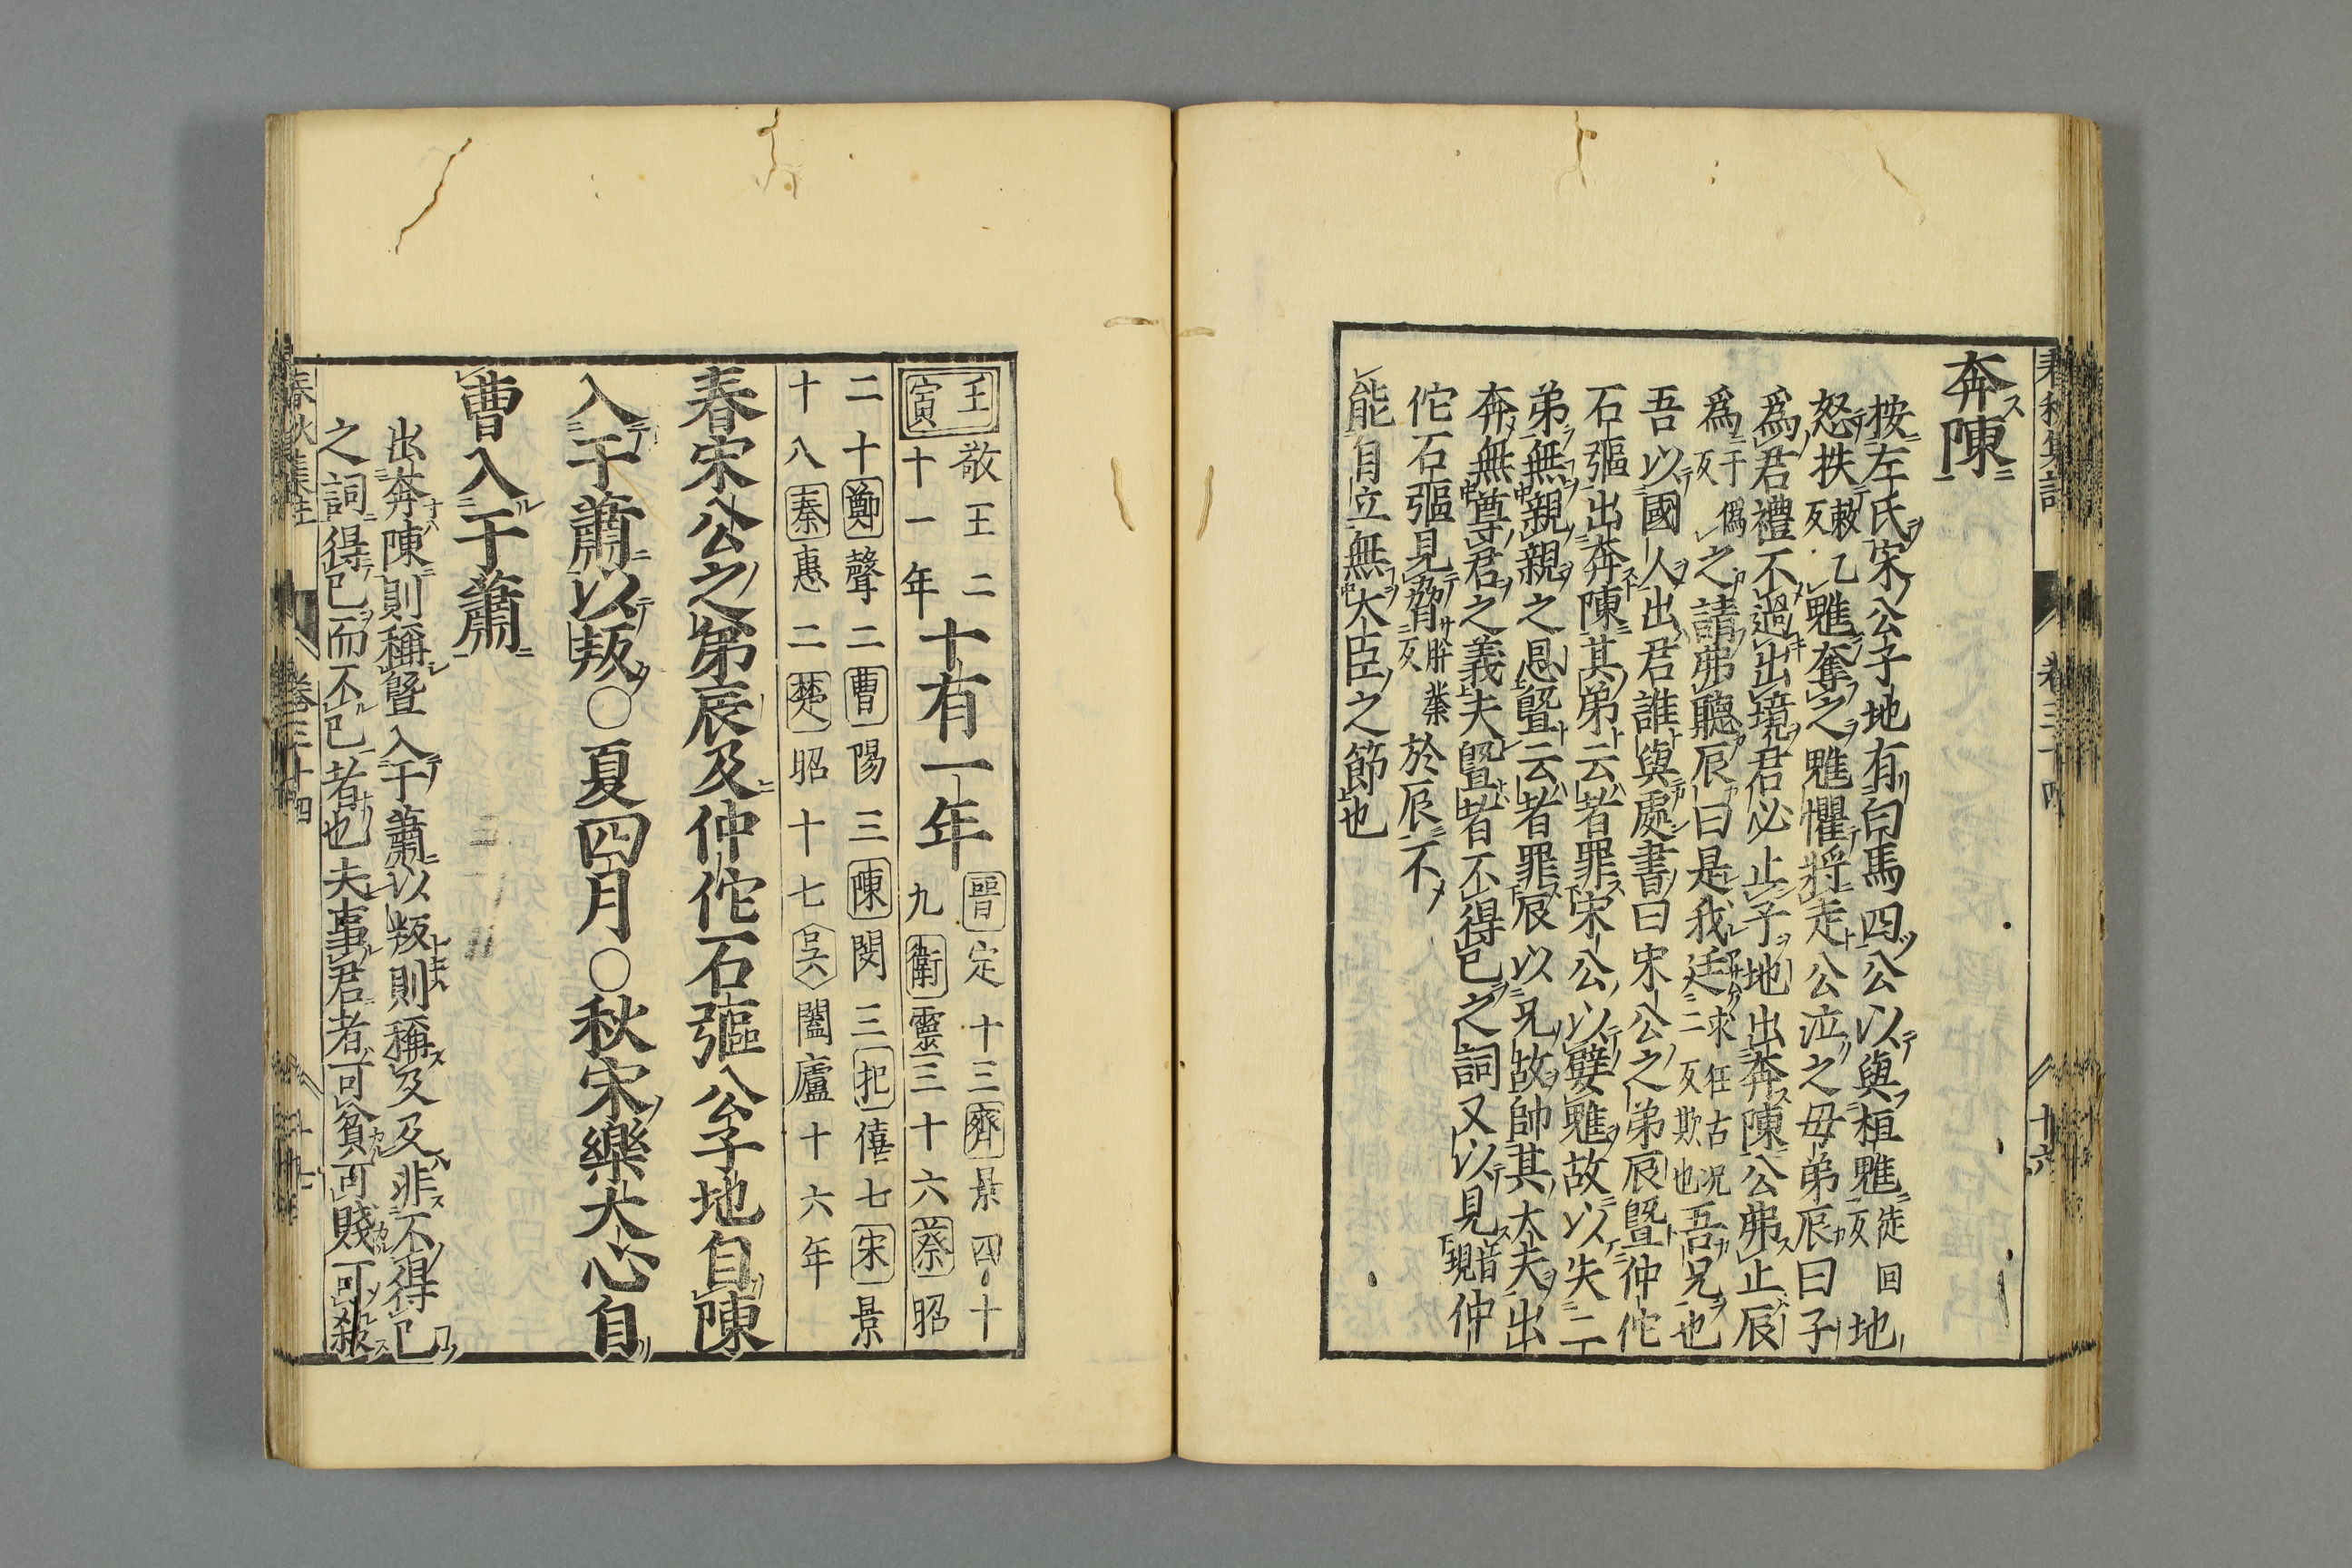 奔陳
按左氏宋公子地有白馬四公以與桓魋徒回反地
怒抶敕乙反魋奪之魋懼將走公泣之毋弟辰曰子
爲君禮不過出境君必止子地出奔陳公弗止辰
爲于僞反之請弗聽辰曰是我迋求枉古况二反欺也吾兄也
吾以國人出君誰與處書曰宋公之弟辰曁仲佗
石彄出奔陳其弟云者罪宋公以嬖魋故以失二
弟無親親之恩曁云者罪辰以兄故帥其大夫出
奔無尊君之義夫曁者不得已之詞又以見音現仲
佗石彄見脅於辰不
能自立無大臣之節也
春秋集註
卷三十四
十六
壬寅敬王二十一年十有一年晉定十三齊景四十九衛靈三十六蔡昭
二十鄭聲二曹陽三陳閔三杞僖七宋景
十八秦惠二楚昭十七吳闔廬十六年
春宋公之弟辰及仲佗石彄公子地自陳
入于蕭以叛○夏四月○秋宋樂大心自
曹入于蕭
出奔陳則稱曁入于蕭以叛則稱及及非不得已
之詞得已而不已者也夫事君者可貧可賤可殺
春秋集註
卷三十四
十七